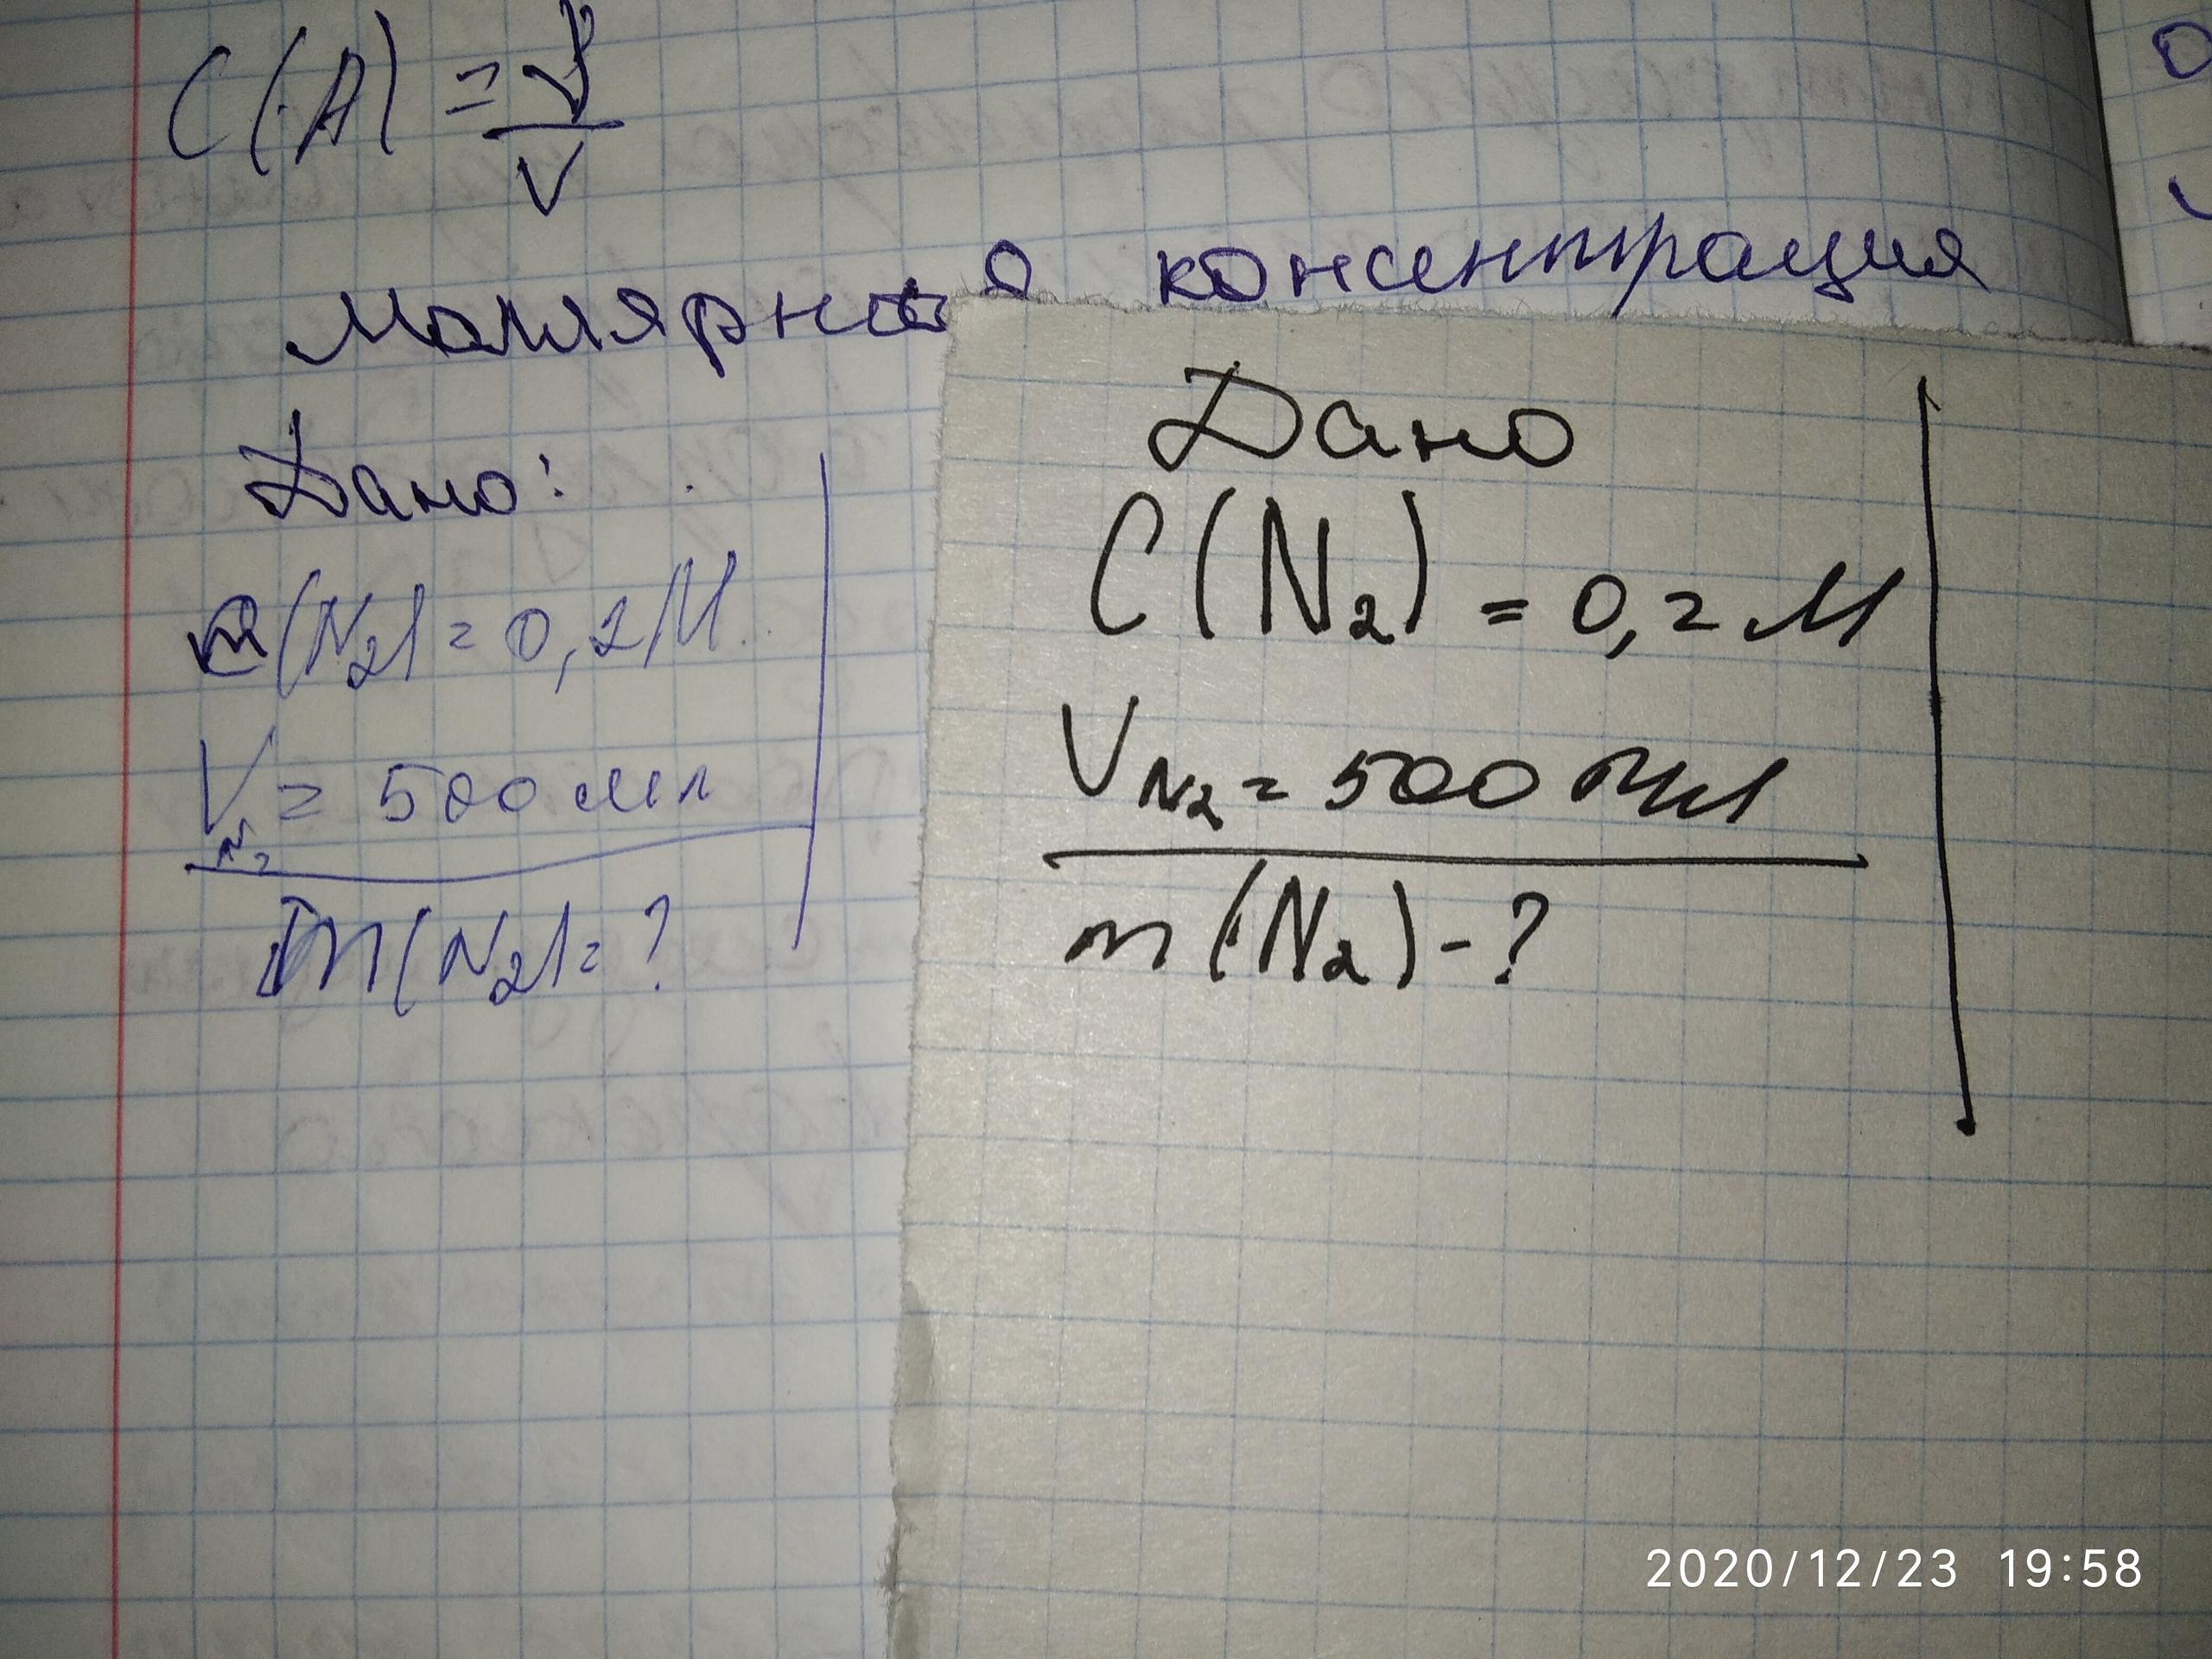 C(A) = ν
V
Молярная консентрация
Дано:
C(N2) = 0,2М
VN2 = 500 мл
m(N2) = ?
Дано
C(N2) = 0,2 М
VN2 = 500 мл
m(N2) - ?
2020/12/23 19:58